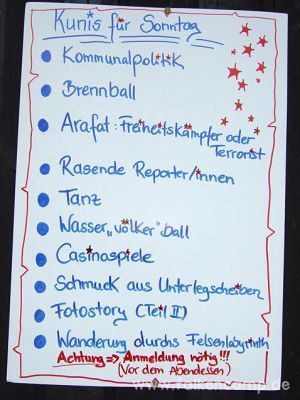 Kunis für Sonntag
Kommunalpolitik
Brennball
Arafat: Freiheitskämpfer oder
Terrorist
Rasende Reporter/innen
Tanz
Wasser„völker"ball
Casinospiele
Schmuck aus Unterlegscheiben
Fotostory (Teil II)
Wanderung durchs Felsenlabyrinth
Achtung => Anmeldung nötig!!!
(Vor dem Abendessen)